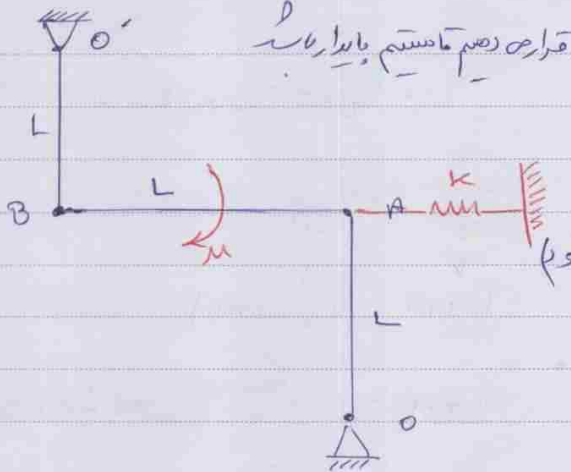 قرار می دهیم تا سیستم پایدار باشد
O'
L
B
L
M
A
K
L
O